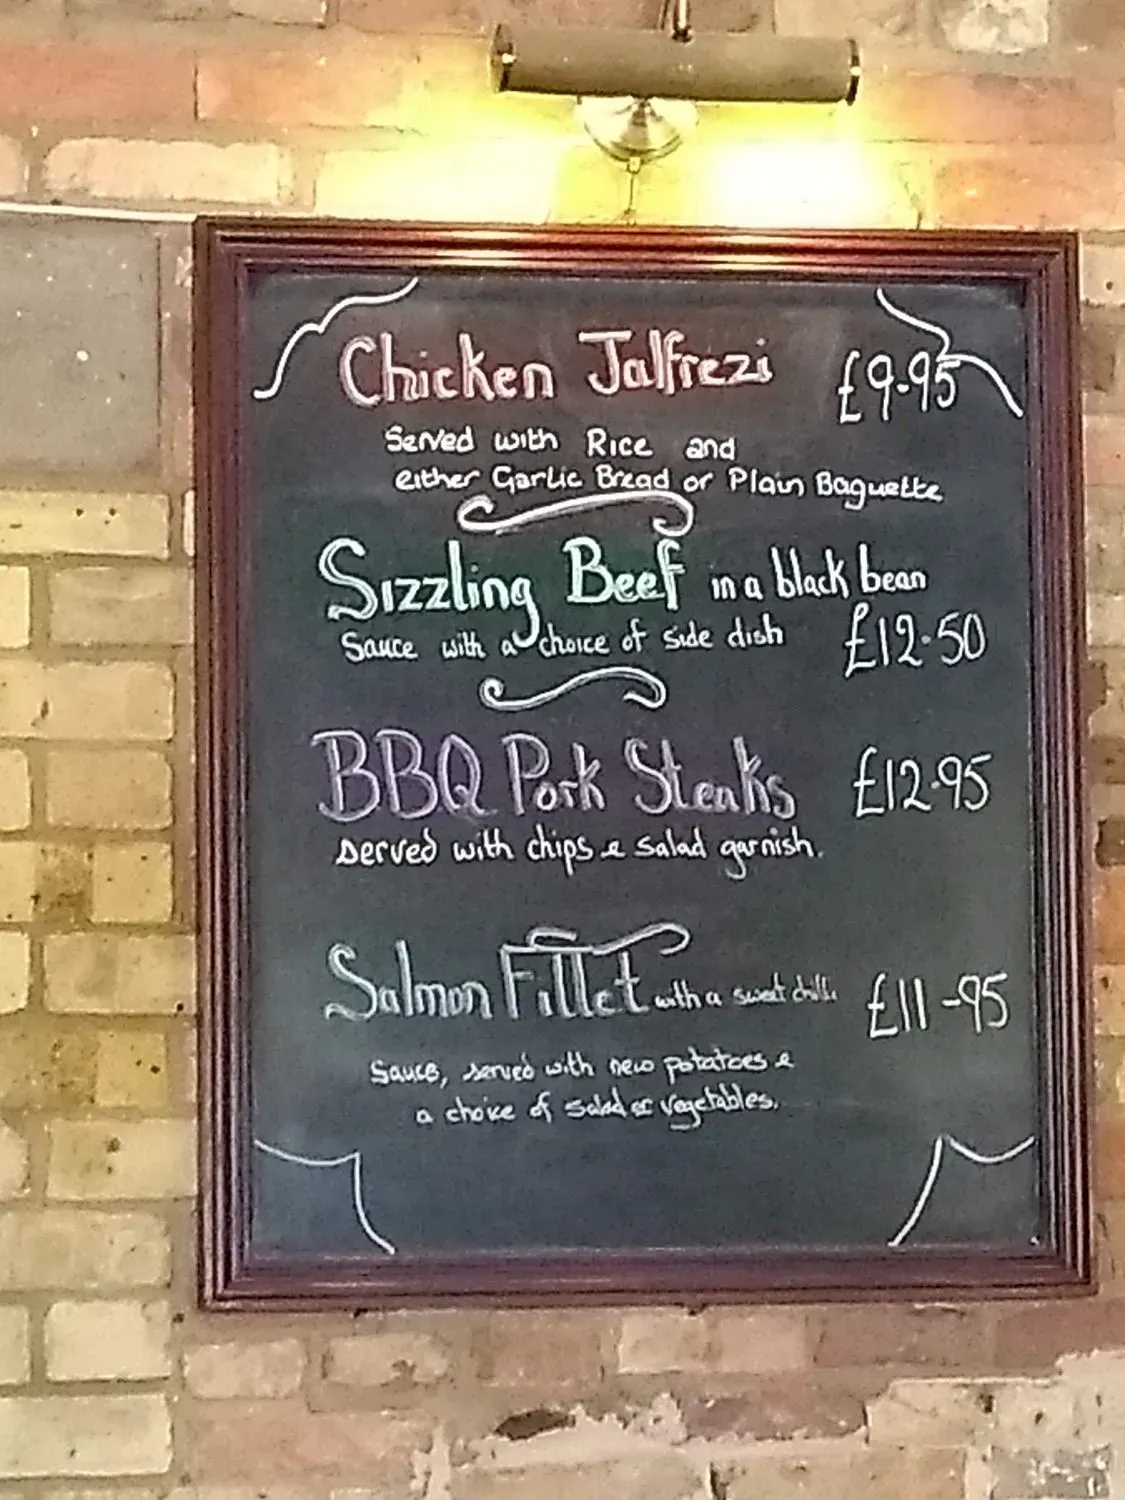 Chicken Jalfrezi £9.95
Served with Rice and
either Garlic Bread or Plain Baguette
Sizzling Beef in a black bean
Sauce with a choice of side dish £12.50
BBQ Pork Steaks £12.95
served with chips & salad garnish.
Salmon Fillet with a sweet chilli £11-95
Sauce, served with new potatoes &
a choice of salad or vegetables.